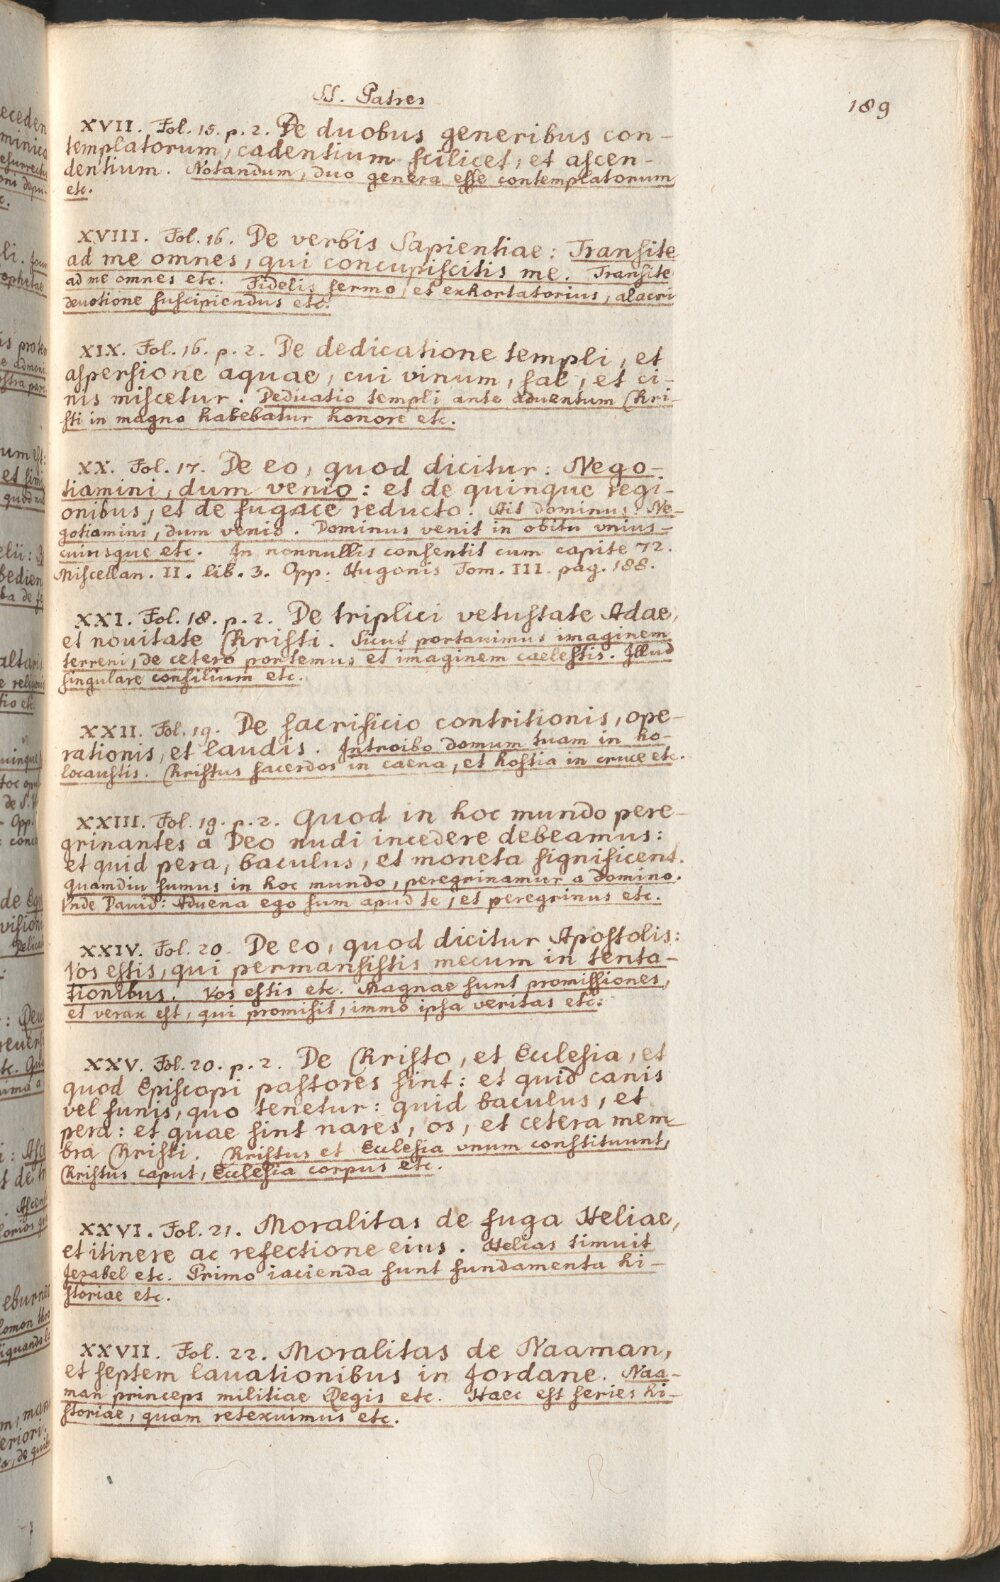 SS. Patres
189
XVII. Fol. 15. p. 2. De duobus generibus con-
templatorum, cadentium scilicet, et ascen-
dentium. Notandum, duo genera esse contemplatorum
etc.
XVIII. Fol. 16. De verbis Sapientiae: Transite
ad me omnes, qui concupiscitis me. Transite
ad me omnes etc. Fidelis sermo, et exhortatorius, alacri
devotione suscipiendus etc.
XIX. Fol. 16. p. 2. De dedicatione templi, et
aspersione aquae, cui vinum, sal, et ci-
nis miscetur. Dedicatio templi ante adventum Chri-
sti in magno habebatur honore etc.
XX. Fol. 17. De eo, quod dicitur: Nego-
tiamini, dum venio: et de quinque regi-
onibus, et de fugace reducto. Ait dominus: Ne-
gotiamini, dum venio. Dominus venit in obitu vnius-
cuiusque etc. In nonnullis consentit cum capite 72.
Miscellan. II. lib. 3. Opp. Hugonis Tom. III. pag. 188.
XXI. Fol. 18. p. 2. De triplici vetustate Adae,
et nouitate Christi. Sicut portauimus imaginem
terreni, de cetero portemus et imaginem caelestis. Illud
singulare consilium etc.
XXII. Fol. 19. De sacrificio contritionis, ope-
rationis, et laudis. Introibo domum tuam in ho-
locaustis. Christus sacerdos in caena, et hostia in cruce etc.
XXIII. Fol. 19. p. 2. Quod in hoc mundo pere-
grinantes a Deo nudi incedere debeamus:
et quid pera, baculus, et moneta significent.
Quamdiu sumus in hoc mundo, peregrinamur a Domino.
Vnde David: Aduena ego sum apud te, et peregrinus etc.
XXIV. Fol. 20. De eo, quod dicitur Apostolis:
Vos estis, qui permansistis mecum in tenta-
tionibus. Vos estis etc. Magnae sunt promissiones,
et verax est, qui promisit, immo ipsa veritas etc.
XXV. Fol. 20. p. 2. De Christo, et Ecclesia, et
quod Episcopi pastores sint: et quid canis
vel funis, quo tenetur: quid baculus, et
pera: et quae sint nares, os, et cetera mem-
bra Christi. Christus et Ecclesia vnum constituunt,
Christus caput, Ecclesia corpus etc.
XXVI. Fol. 21. Moralitas de fuga Heliae,
et itinere ac refectione eius. Helias timuit
Jezabel etc. Primo iacienda sunt fundamenta hi-
storiae etc.
XXVII. Fol. 22. Moralitas de Naaman,
et septem lauationibus in Jordane. Naa-
man princeps militiae Regis etc. Haec est series hi-
storiae, quam retexuimus etc.